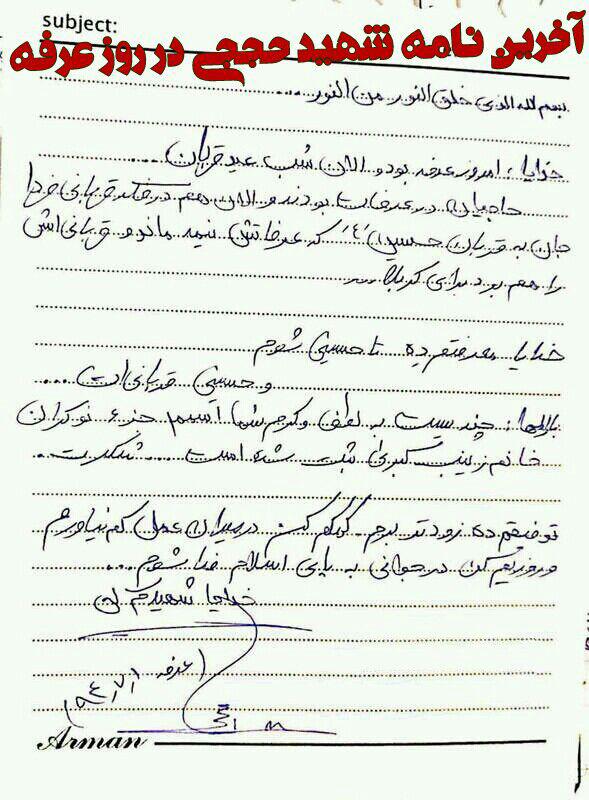 subject:
آخرین نامه شهید حججی در روز عرفه
بسم الله الذی خلق النور من النور...
خدایا، امروز عرفه بود و الان شب عید قربان...
حاجیان در عرفات بودند و الان هم در فکر قربانی فردا
جان به قربان حسین (ع) که عرفاتش نیمه ماند و قربانی‌اش
را هم برد برای کربلا...
خدایا معرفتم ده تا حسینی شوم
و حسینی قربانی‌ات...
بارالها، چندیست به لطف و کرم شما اسمم جزء نوکران
خانم زینب کبری ثبت شده است... شکرت...
توفیقم ده زودتر برم. کمکم کن در میدان عمل کم نیاورم
و روزیم کن در جوانی به پای اسلام فدا شوم...
خدایا شهیدم کن
عرفه
Arman